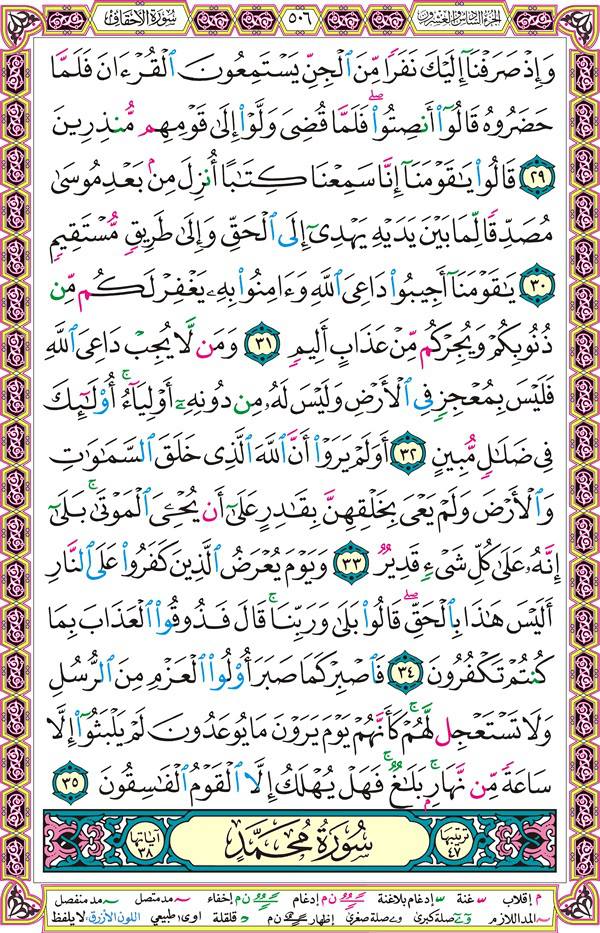 سورة الأحقاف
٥٠٦
الجزء السادس والعشرون
وَإِذْ صَرَفْنَآ إِلَيْكَ نَفَرًا مِّنَ ٱلْجِنِّ يَسْتَمِعُونَ ٱلْقُرْءَانَ فَلَمَّا
حَضَرُوهُ قَالُوٓا۟ أَنصِتُوا۟ ۖ فَلَمَّا قُضِىَ وَلَّوْا۟ إِلَىٰ قَوْمِهِم مُّنذِرِينَ
٢٩ قَالُوا۟ يَـٰقَوْمَنَآ إِنَّا سَمِعْنَا كِتَـٰبًا أُنزِلَ مِنۢ بَعْدِ مُوسَىٰ
مُصَدِّقًا لِّمَا بَيْنَ يَدَيْهِ يَهْدِىٓ إِلَى ٱلْحَقِّ وَإِلَىٰ طَرِيقٍ مُّسْتَقِيمٍ
٣٠ يَـٰقَوْمَنَآ أَجِيبُوا۟ دَاعِىَ ٱللَّهِ وَءَامِنُوا۟ بِهِۦ يَغْفِرْ لَكُم مِّن
ذُنُوبِكُمْ وَيُجِرْكُم مِّنْ عَذَابٍ أَلِيمٍ ٣١ وَمَن لَّا يُجِبْ دَاعِىَ ٱللَّهِ
فَلَيْسَ بِمُعْجِزٍ فِى ٱلْأَرْضِ وَلَيْسَ لَهُۥ مِن دُونِهِۦٓ أَوْلِيَآءُ ۚ أُو۟لَـٰٓئِكَ
فِى ضَلَـٰلٍ مُّبِينٍ ٣٢ أَوَلَمْ يَرَوْا۟ أَنَّ ٱللَّهَ ٱلَّذِى خَلَقَ ٱلسَّمَـٰوَٰتِ
وَٱلْأَرْضَ وَلَمْ يَعْىَ بِخَلْقِهِنَّ بِقَـٰدِرٍ عَلَىٰٓ أَن يُحْـِۧىَ ٱلْمَوْتَىٰ ۚ بَلَىٰٓ
إِنَّهُۥ عَلَىٰ كُلِّ شَىْءٍ قَدِيرٌ ٣٣ وَيَوْمَ يُعْرَضُ ٱلَّذِينَ كَفَرُوا۟ عَلَى ٱلنَّارِ
أَلَيْسَ هَـٰذَا بِٱلْحَقِّ ۖ قَالُوا۟ بَلَىٰ وَرَبِّنَا ۚ قَالَ فَذُوقُوا۟ ٱلْعَذَابَ بِمَا
كُنتُمْ تَكْفُرُونَ ٣٤ فَٱصْبِرْ كَمَا صَبَرَ أُو۟لُوا۟ ٱلْعَزْمِ مِنَ ٱلرُّسُلِ
وَلَا تَسْتَعْجِل لَّهُمْ ۚ كَأَنَّهُمْ يَوْمَ يَرَوْنَ مَا يُوعَدُونَ لَمْ يَلْبَثُوٓا۟ إِلَّا
سَاعَةً مِّن نَّهَارٍۭ ۚ بَلَـٰغٌ ۚ فَهَلْ يُهْلَكُ إِلَّا ٱلْقَوْمُ ٱلْفَـٰسِقُونَ ٣٥
ترتيبها ٤٧
سُورَةُ مُحَمَّدٍ
آياتها ٣٨
م إقلاب س غنة س إدغام بلاغنة ن م إدغام ن م إخفاء مد متصل مد منفصل
المد اللازم صلة كبرى صلة صغرى إظهار ن م د قلقلة اوى طبيعي اللون الأزرق: لا يلفظ